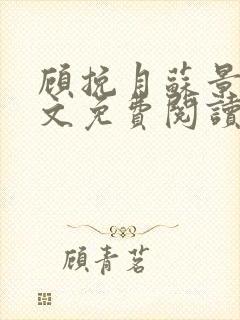 顧挽月蘇景
文免費閱讀
顧青茗